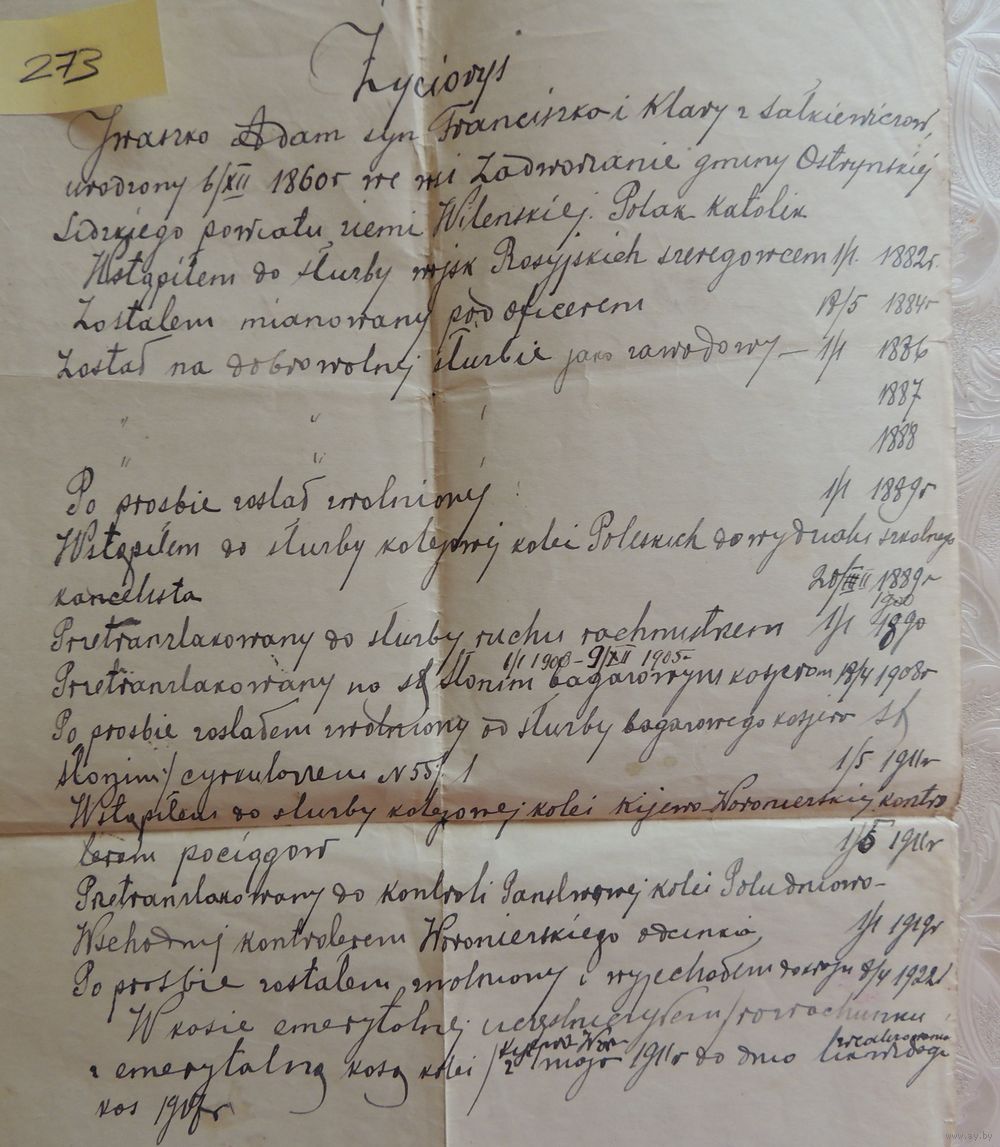 273
Życiorys
Iwaszko Adam syn Franciszka i Klary z Sałkiewiczow,
urodzony 6/XII 1860r we wsi Zadworzanie gminy Ostrynskiej
Lidzkiego powiatu ziemi Wilenskiej. Polak Katolik
Wstąpiłem do służby wojsk Rosyjskich szeregowcem 1/1. 1882r.
Zostalem mianowany pod oficerem 18/5 1884r
Został na dobrowolnej służbie jako zawodowy — 1/1 1886
1887
" " " 1888
" " "
Po prosbie został zwolniony 1/1 1889r
Wstąpiłem do służby kolejowej kolei Poleskich do wydziału szkolnego
20/II 1889r
kancelista
1900
Przetranzlakowany do służby ruchu rachmistrzem 1/1 1890
1/1 1900 - 9/XII 1905r
Przetranzlakowany na st Słonim bagazowym kasjerom 18/4 1908r
Po prosbie zostałem zwolniony od służby bagazowego kasjera st
Słonim / cyrkularzem N 55/ 1 1/5 1911r
Wstąpiłem do służby kolejowej kolei Kijewo-Woronierskiej kontro
lerem pociągow 1/5 1911r
Przetranzlakowany do kontroli Panstwowej kolei Południowo-
Wschodniej kontrolerem Woronierskiego odcinka, 1/1 1919r
Po prosbie zostałem zwolniony i wyjechałem do kraju 8/4 1922r
W kasie emerytalnej uczestniczyłem / rozrachunku
z emerytalną kasą kolei / 2 maja 1911r do dnia likwidacji
kas
www.ay.by